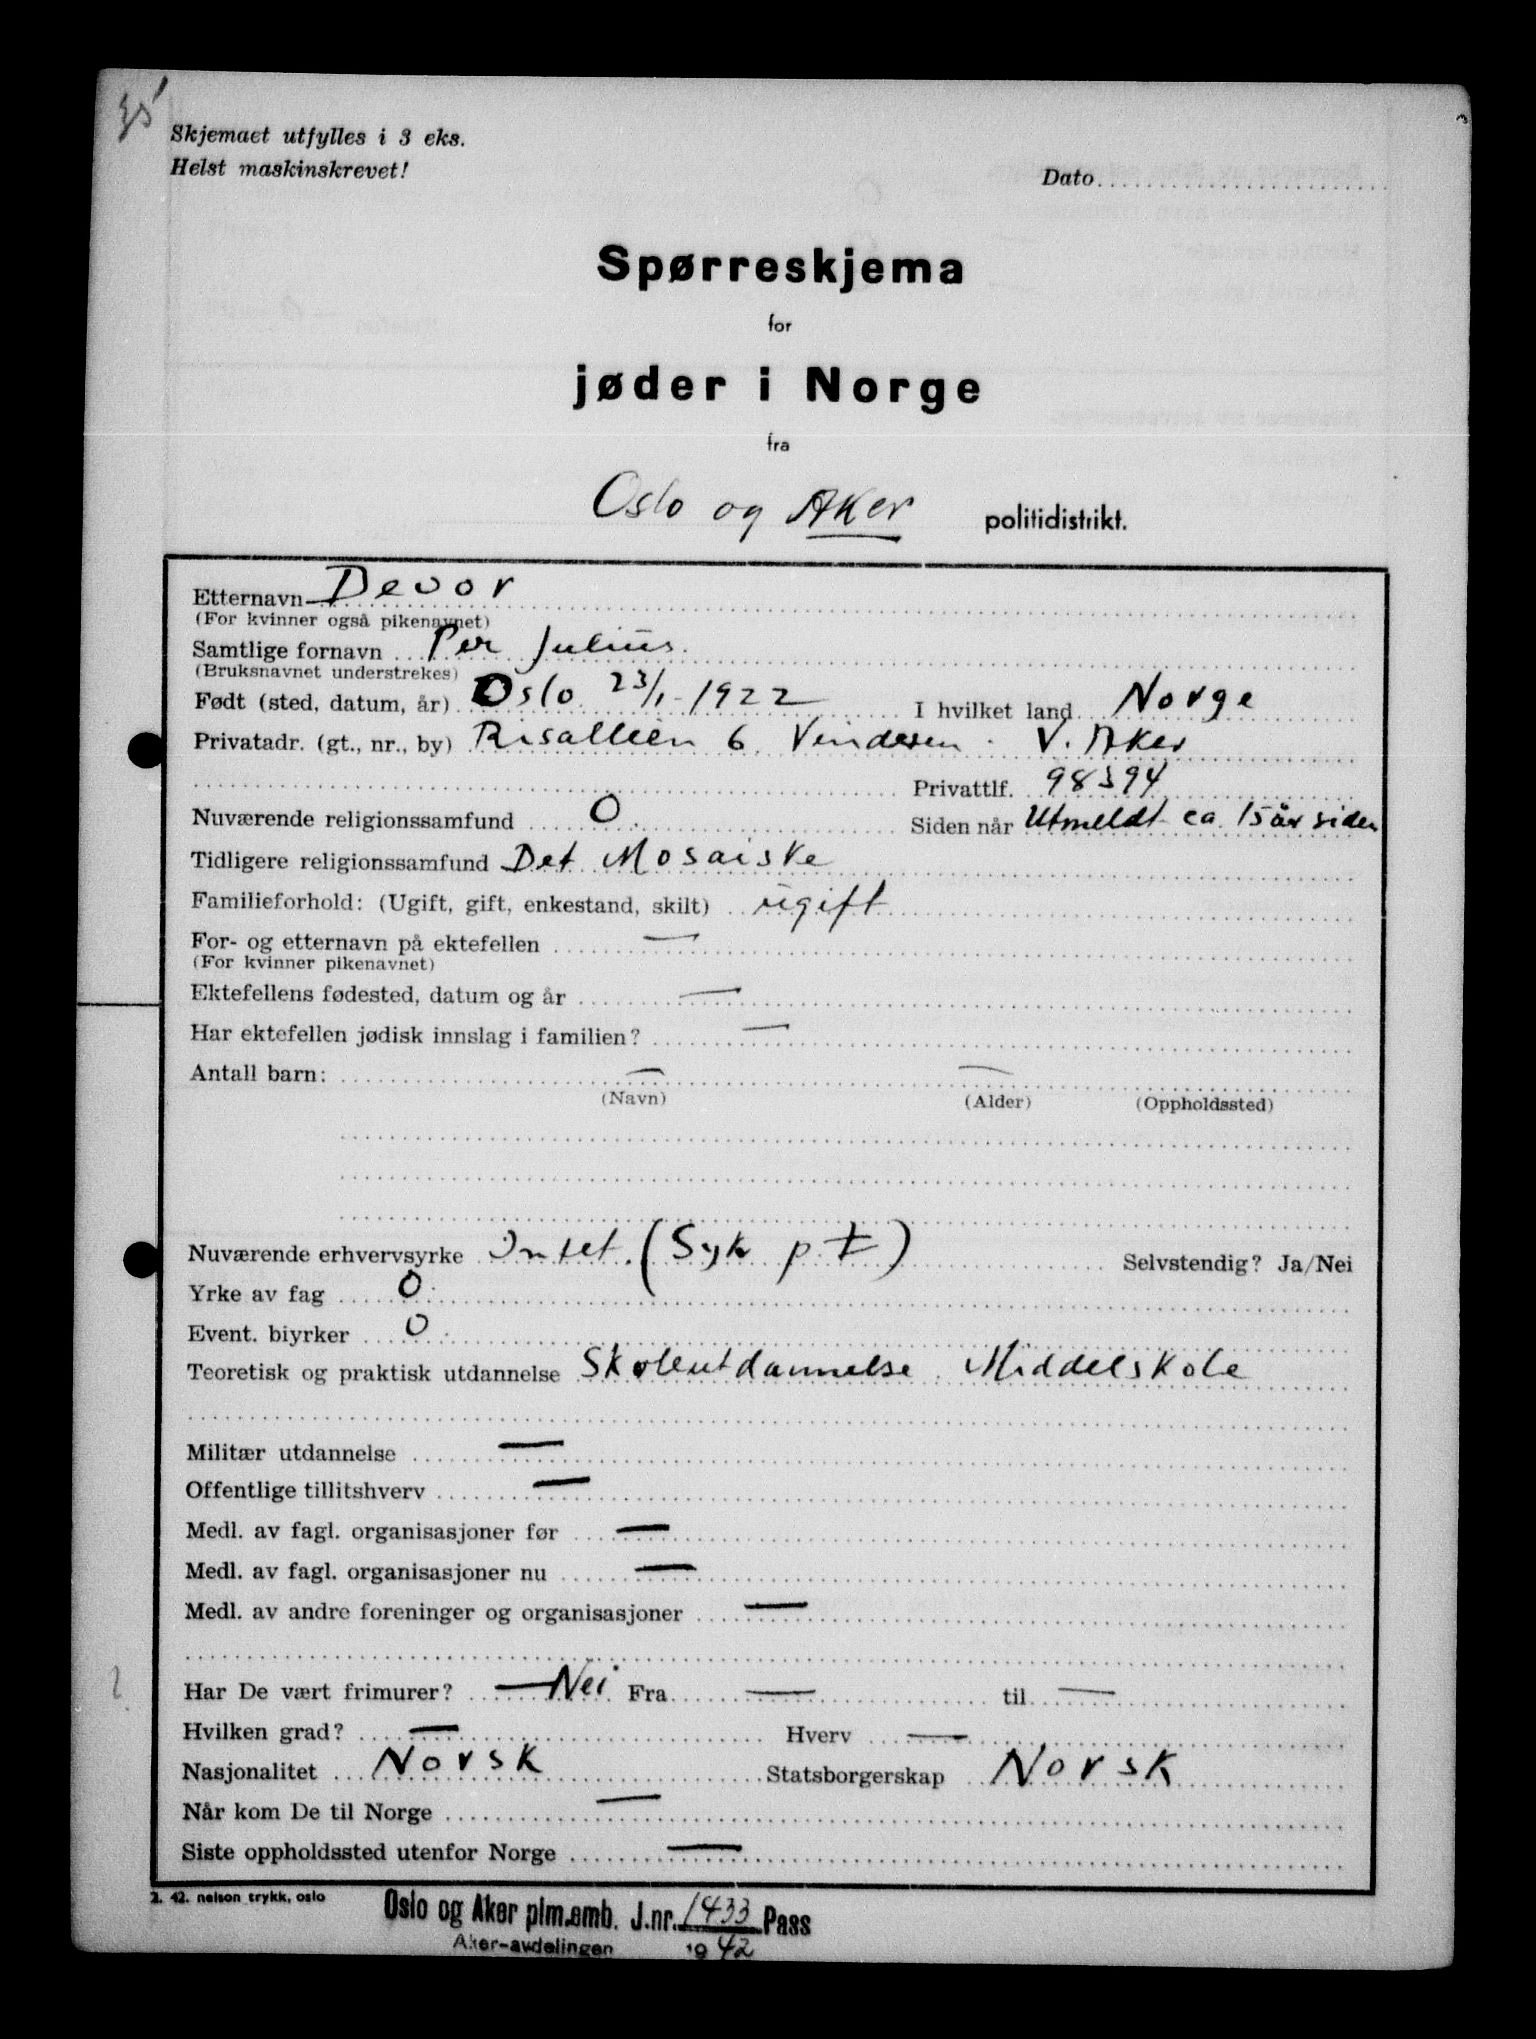 35
Skjemaet utfylles i 3 eks.
Helst maskinskrevet!
Dato
Spørreskjema
for
jøder i Norge
fra
Oslo og Aker politidistrikt.
Etternavn Devor
(For kvinner også pikenavnet)
Samtlige fornavn Per Julius.
(Bruksnavnet understrekes)
Født (sted, datum, år) Oslo 23/1-1922 I hvilket land Norge
Privatadr. (gt., nr., by) Risalleen 6 Vinderen. V. Aker
Privattlf. 98394
Nuværende religionssamfund 0. Siden når Utmeldt ca. 15 år siden
Tidligere religionssamfund Det Mosaiske
Familieforhold: (Ugift, gift, enkestand, skilt) ugift
For- og etternavn på ektefellen —
(For kvinner pikenavnet)
Ektefellens fødested, datum og år —
Har ektefellen jødisk innslag i familien? —
Antall barn: — —
(Navn) (Alder) (Oppholdssted)
Nuværende erhvervsyrke Intet. (Syk p.t) Selvstendig? Ja/Nei
Yrke av fag 0
Event. biyrker 0
Teoretisk og praktisk utdannelse Skoleutdannelse. Middelskole
Militær utdannelse —
Offentlige tillitshverv —
Medl. av fagl. organisasjoner før —
Medl. av fagl. organisasjoner nu —
Medl. av andre foreninger og organisasjoner —
Har De vært frimurer? — Nei Fra — til —
Hvilken grad? — Hverv —
Nasjonalitet Norsk Statsborgerskap Norsk
Når kom De til Norge —
Siste oppholdssted utenfor Norge —
2. 42. nelson trykk, oslo
Oslo og Aker plm.emb. J.nr. 1433 Pass
Aker-avdelingen 1942